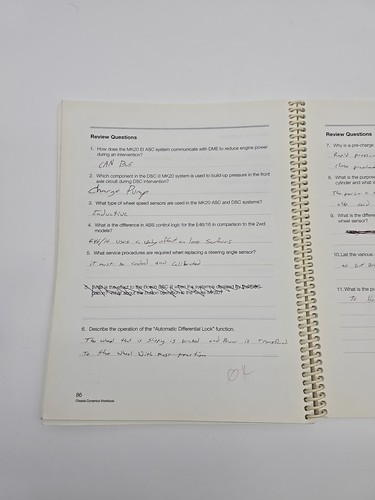 Review Questions
1. How does the MK20 EI ASC system communicate with DME to reduce engine power
during an intervention?
CAN Bus
2. Which component in the DSC III MK20 system is used to build-up pressure in the front
axle circuit during DSC intervention?
Charge Pump
3. What type of wheel speed sensors are used in the MK20 ASC and DSC systems?
Inductive
4. What is the difference in ABS control logic for the E46/16 in comparison to the 2wd
models?
E46/16 uses a on loose surfaces
5. What service procedures are required when replacing a steering angle sensor?
it must be coded and calibrated
6. Describe the operation of the "Automatic Differential Lock" function.
The wheel that is slipping is braked and Power is transfered
To the wheel with most traction
OK
86
Chassis Dynamics Workbook
Review Questions
7. Why is a pre-charge
Rapid
8. What is the purpose
cylinder and what
9. What is the differe
sensor?
10. List the various
11. What is the pu
To